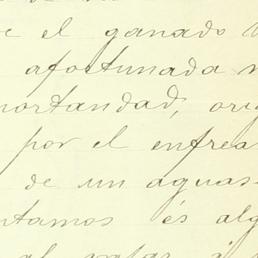 el ganado
afortunada
mortandad, orig
por el enfrea
de un aguas
ntamos és alg